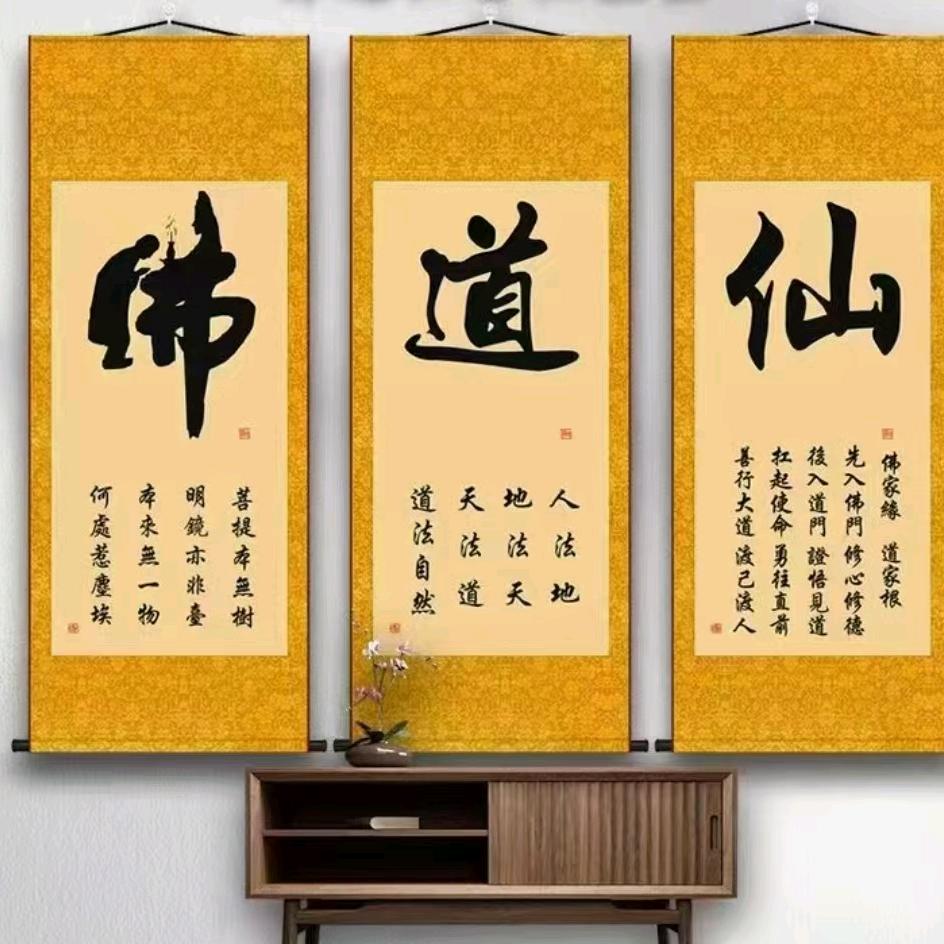 佛
菩提本無樹
明鏡亦非臺
本來無一物
何處惹塵埃
道
人法地
地法天
天法道
道法自然
仙
佛家緣 道家根
先入佛門修心修德
後入道門證悟見道
扛起使命勇往直前
善行大道渡己渡人